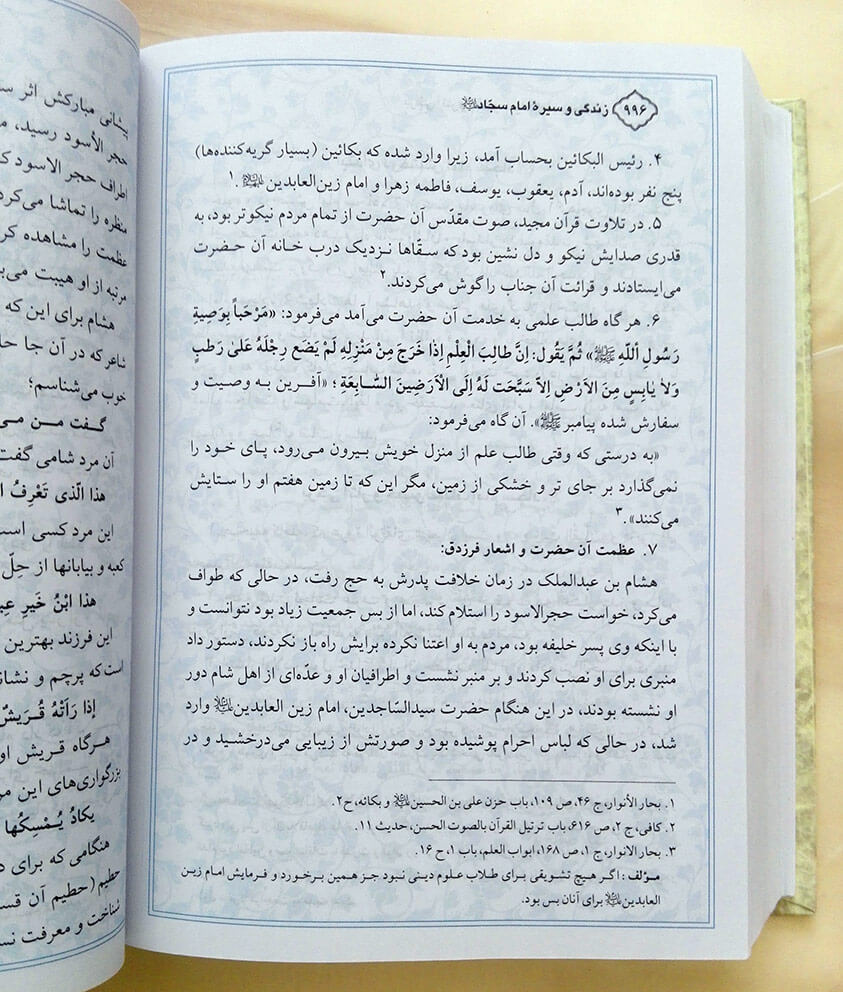 ۹۹۶ زندگی و سیرهٔ امام سجّاد علیه‌السلام
۴. رئیس البکائین بحساب آمد، زیرا وارد شده که بکائین (بسیار گریه‌کننده‌ها)
پنج نفر بوده‌اند، آدم، یعقوب، یوسف، فاطمه زهرا و امام زین‌العابدین علیهم‌السلام.۱
۵. در تلاوت قرآن مجید، صوت مقدّس آن حضرت از تمام مردم نیکوتر بود، به
قدری صدایش نیکو و دل نشین بود که سقّاها نزدیک درب خانه آن حضرت
می‌ایستادند و قرائت آن جناب را گوش می‌کردند.۲
۶. هر گاه طالب علمی به خدمت آن حضرت می‌آمد می‌فرمود: «مَرْحَباً بِوَصِیةِ
رَسُولِ اللّهِ ﷺ» ثُمَّ یَقُول: إنَّ طالِبَ الْعِلْمِ إذا خَرَجَ مِنْ مَنْزِلِهِ لَمْ یَضَع رِجْلَهُ عَلیٰ رَطبٍ
وَلاٰ یٰابِسٍ مِنَ الاَرْضِ اِلاّ سَبَّحَت لَهُ اِلَی الْاَرَضِینَ السّٰابِعَةِ؛ «آفرین به وصیت و
سفارش شده پیامبر ﷺ». آن گاه می‌فرمود:
«به درستی که وقتی طالب علم از منزل خویش بیرون می‌رود، پای خود را
نمی‌گذارد بر جای تر و خشکی از زمین، مگر این که تا زمین هفتم او را ستایش
می‌کنند».۳
۷. عظمت آن حضرت و اشعار فرزدق:
هشام بن عبدالملک در زمان خلافت پدرش به حج رفت، در حالی که طواف
می‌کرد، خواست حجرالاسود را استلام کند، اما از بس جمعیت زیاد بود نتوانست و
با اینکه وی پسر خلیفه بود، مردم به او اعتنا نکرده برایش راه باز نکردند، دستور داد
منبری برای او نصب کردند و بر منبر نشست و اطرافیان او و عدّه‌ای از اهل شام دور
او نشسته بودند، در این هنگام حضرت سیدالسّاجدین، امام زین العابدین علیه‌السلام وارد
شد، در حالی که لباس احرام پوشیده بود و صورتش از زیبایی می‌درخشید و در
۱. بحار الأنوار، ج ۴۶، ص ۱۰۹، باب حزن علی بن الحسین علیه‌السلام و بکائه، ح۲.
۲. کافی، ج ۲، ص ۶۱۶، باب ترتیل القرآن بالصوت الحسن، حدیث ۱۱.
۳. بحار الانوار، ج ۱، ص ۱۶۸، ابواب العلم، باب ۱، ح ۱۶.
مؤلف: اگر هیچ تشویقی برای طلاب علوم دینی نبود جز همین برخورد و فرمایش امام زین
العابدین علیه‌السلام برای آنان بس بود.
پیشانی مبارکش اثر
حجر الأسود رسید،
اطراف حجر الاسود
منظره را تماشا می‌کرد
عظمت را مشاهده
مرتبه از او هیبت
هشام برای این که
شاعر که در آن جا
خوب می‌شناسم؛
گفت من
آن مرد شامی گفت
هذا الّذی تَعْرِفُ
این مرد کسی است
کعبه و بیابانها از حِلّ
هذا ابْنُ خَیرِ
این فرزند بهترین
است که پرچم و
إذا رَأَتْهُ قُرَیشٌ
هرگاه قریش او
بزرگواری‌های این
یکادُ یُمْسِکُها
هنگامی که برای
حطیم (حطیم آن
شناخت و معرفت